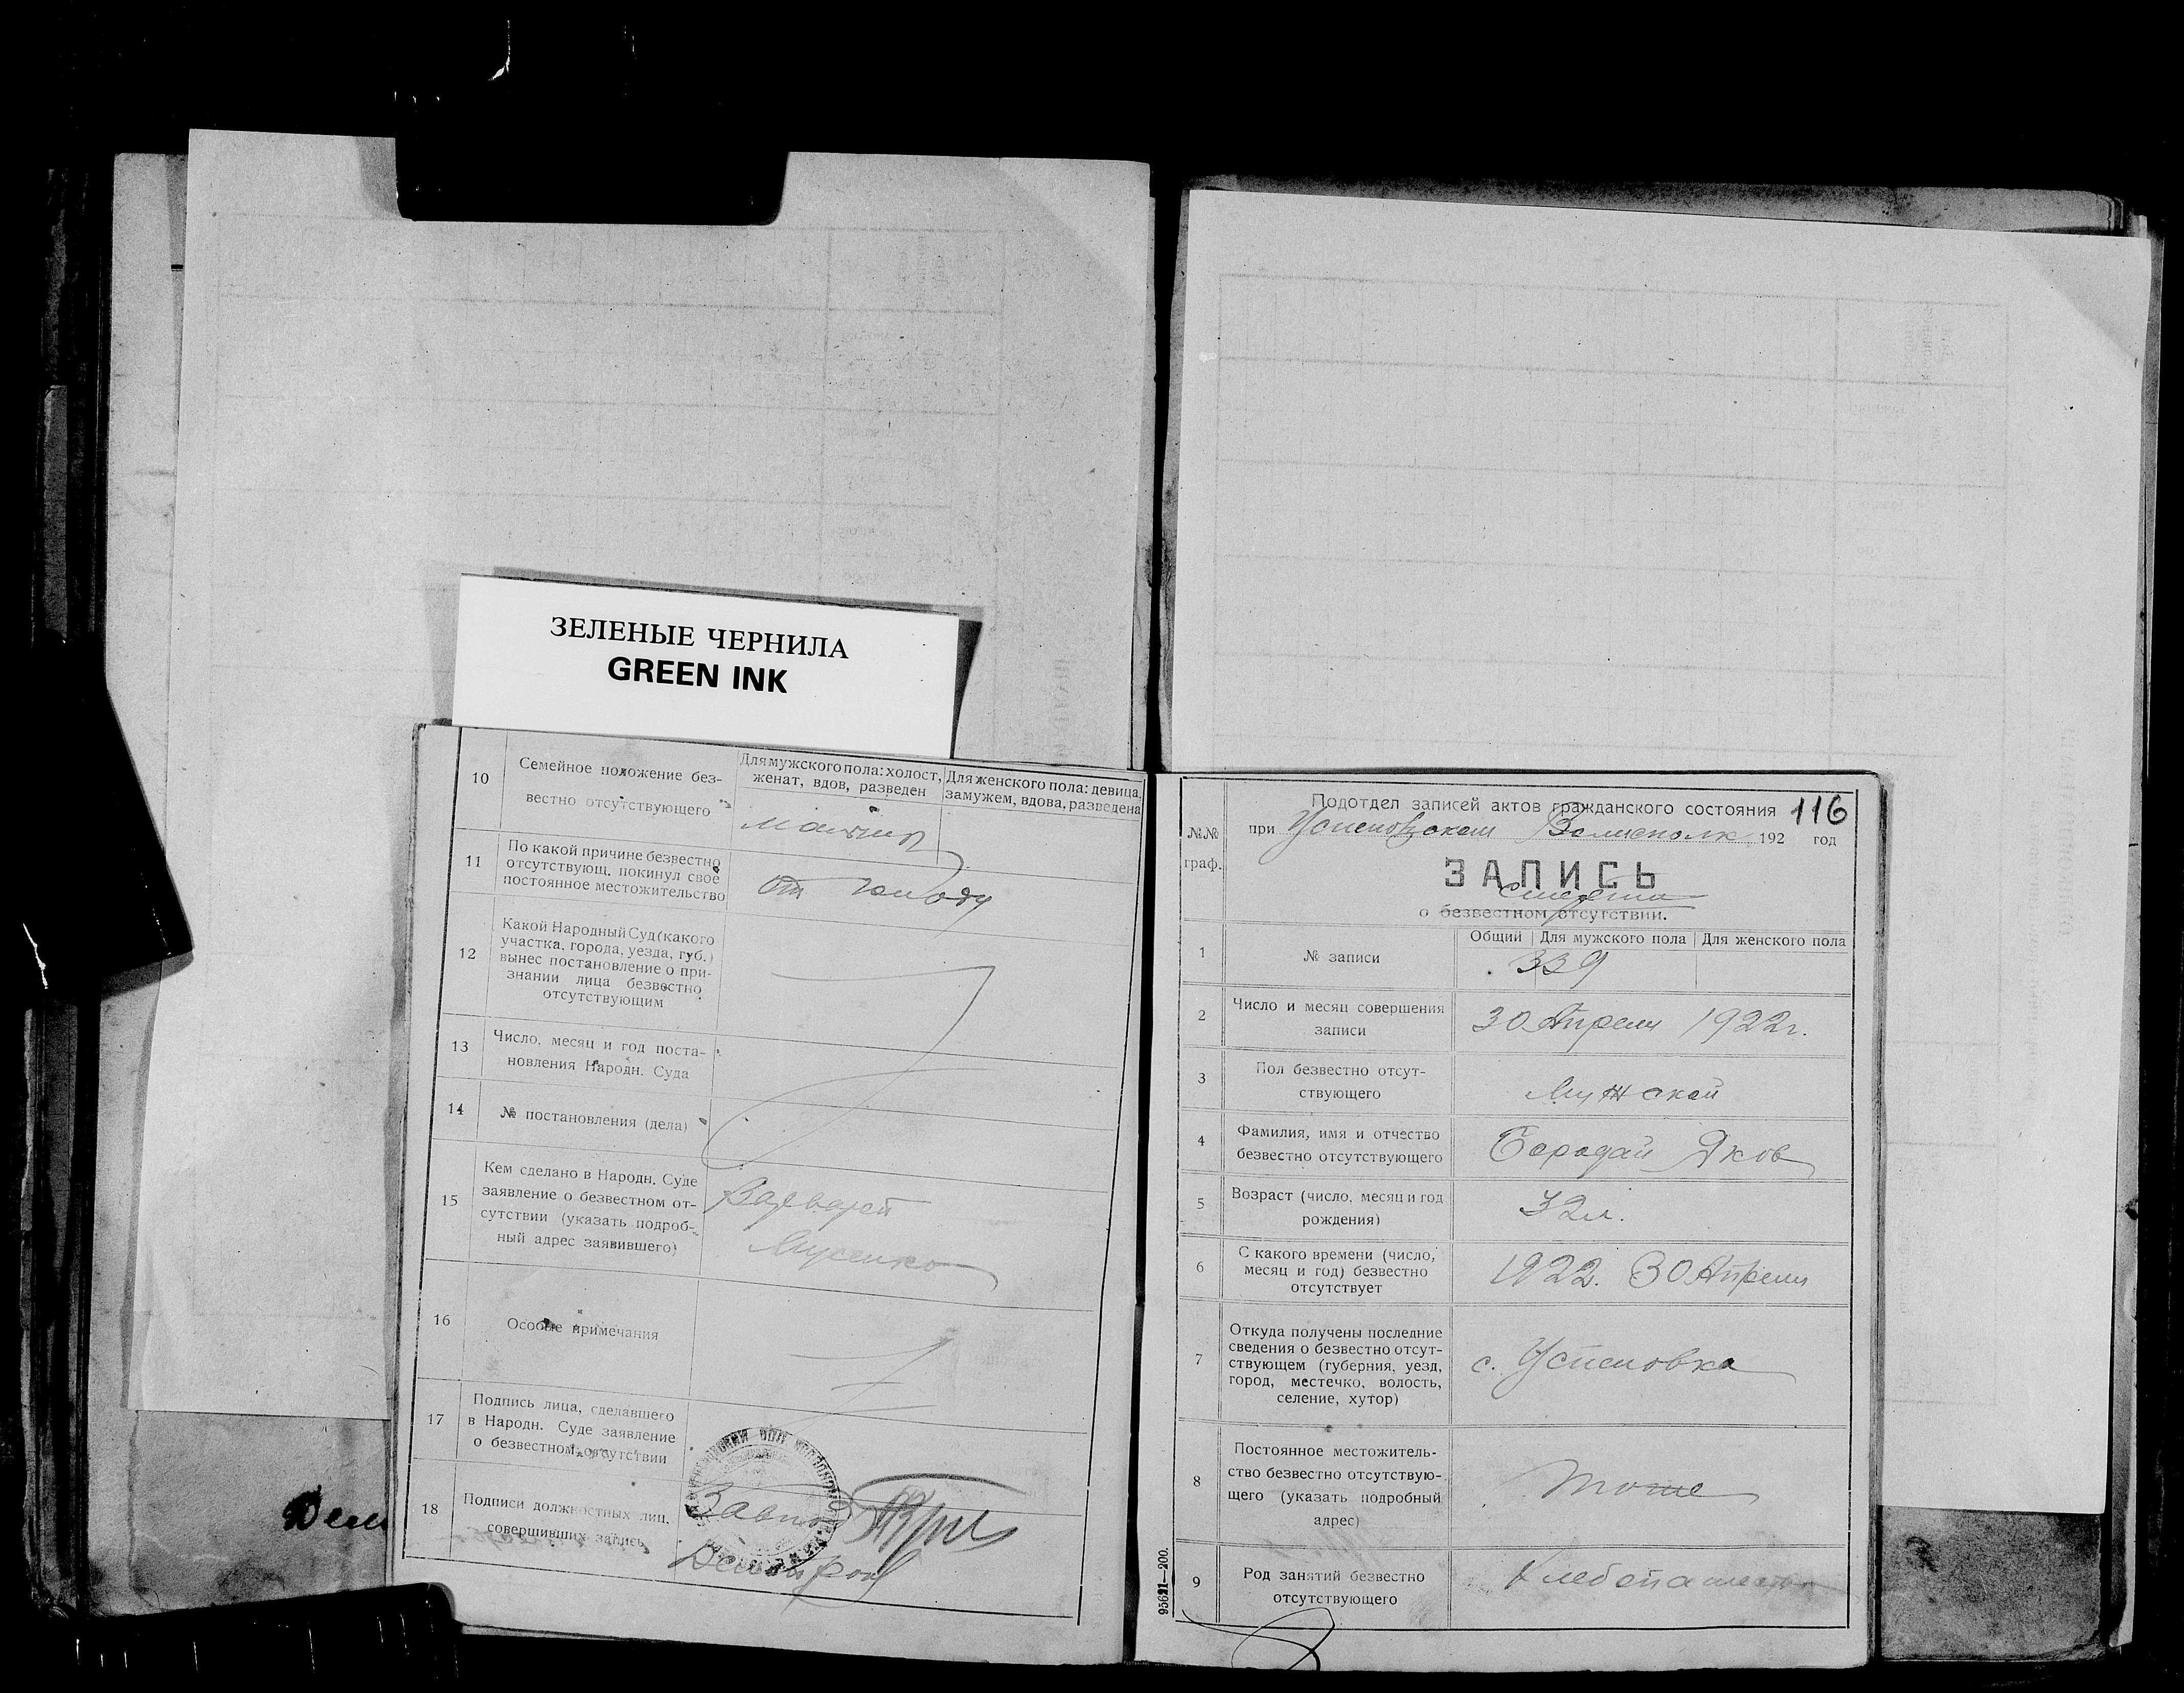 ЗЕЛЕНЫЕ ЧЕРНИЛА
GREEN INK
10
Семейное положение без-
вестно отсутствующего
Для мужского пола: холост,
женат, вдов, разведен
Для женского пола: девица,
замужем, вдова, разведена
11
По какой причине безвестно
отсутствующ. покинул свое
постоянное местожительство
от голоду
12
Какой Народный Суд (какого
участка, города, уезда, губ.)
вынес постановление о при-
знании лица безвестно
отсутствующим
13
Число, месяц и год поста-
новления Народн. Суда
14
№ постановления (дела)
15
Кем сделано в Народн. Суде
заявление о безвестном от-
сутствии (указать подроб-
ный адрес заявившего)
16
Особые примечания
17
Подпись лица, сделавшего
в Народн. Суде заявление
о безвестном отсутствии
18
Подписи должностных лиц,
совершивших запись
116
№№
граф.
Подотдел записей актов гражданского состояния
при Успеновском Волисполк. 192 год
ЗАПИСЬ
смерти
о безвестном отсутствии.
1
№ записи
Общий
Для мужского пола
Для женского пола
339
2
Число и месяц совершения
записи
30 Апреля 1922г.
3
Пол безвестно отсут-
ствующего
Мужской
4
Фамилия, имя и отчество
безвестно отсутствующего
Бородай Яков
5
Возраст (число, месяц и год
рождения)
32л.
6
С какого времени (число,
месяц и год) безвестно
отсутствует
1922. 30 Апреля
7
Откуда получены последние
сведения о безвестно отсут-
ствующем (губерния, уезд,
город, местечко, волость,
селение, хутор)
с. Успеновка
8
Постоянное местожитель-
ство безвестно отсутствую-
щего (указать подробный
адрес)
тоже
9
Род занятий безвестно
отсутствующего
95621—200.